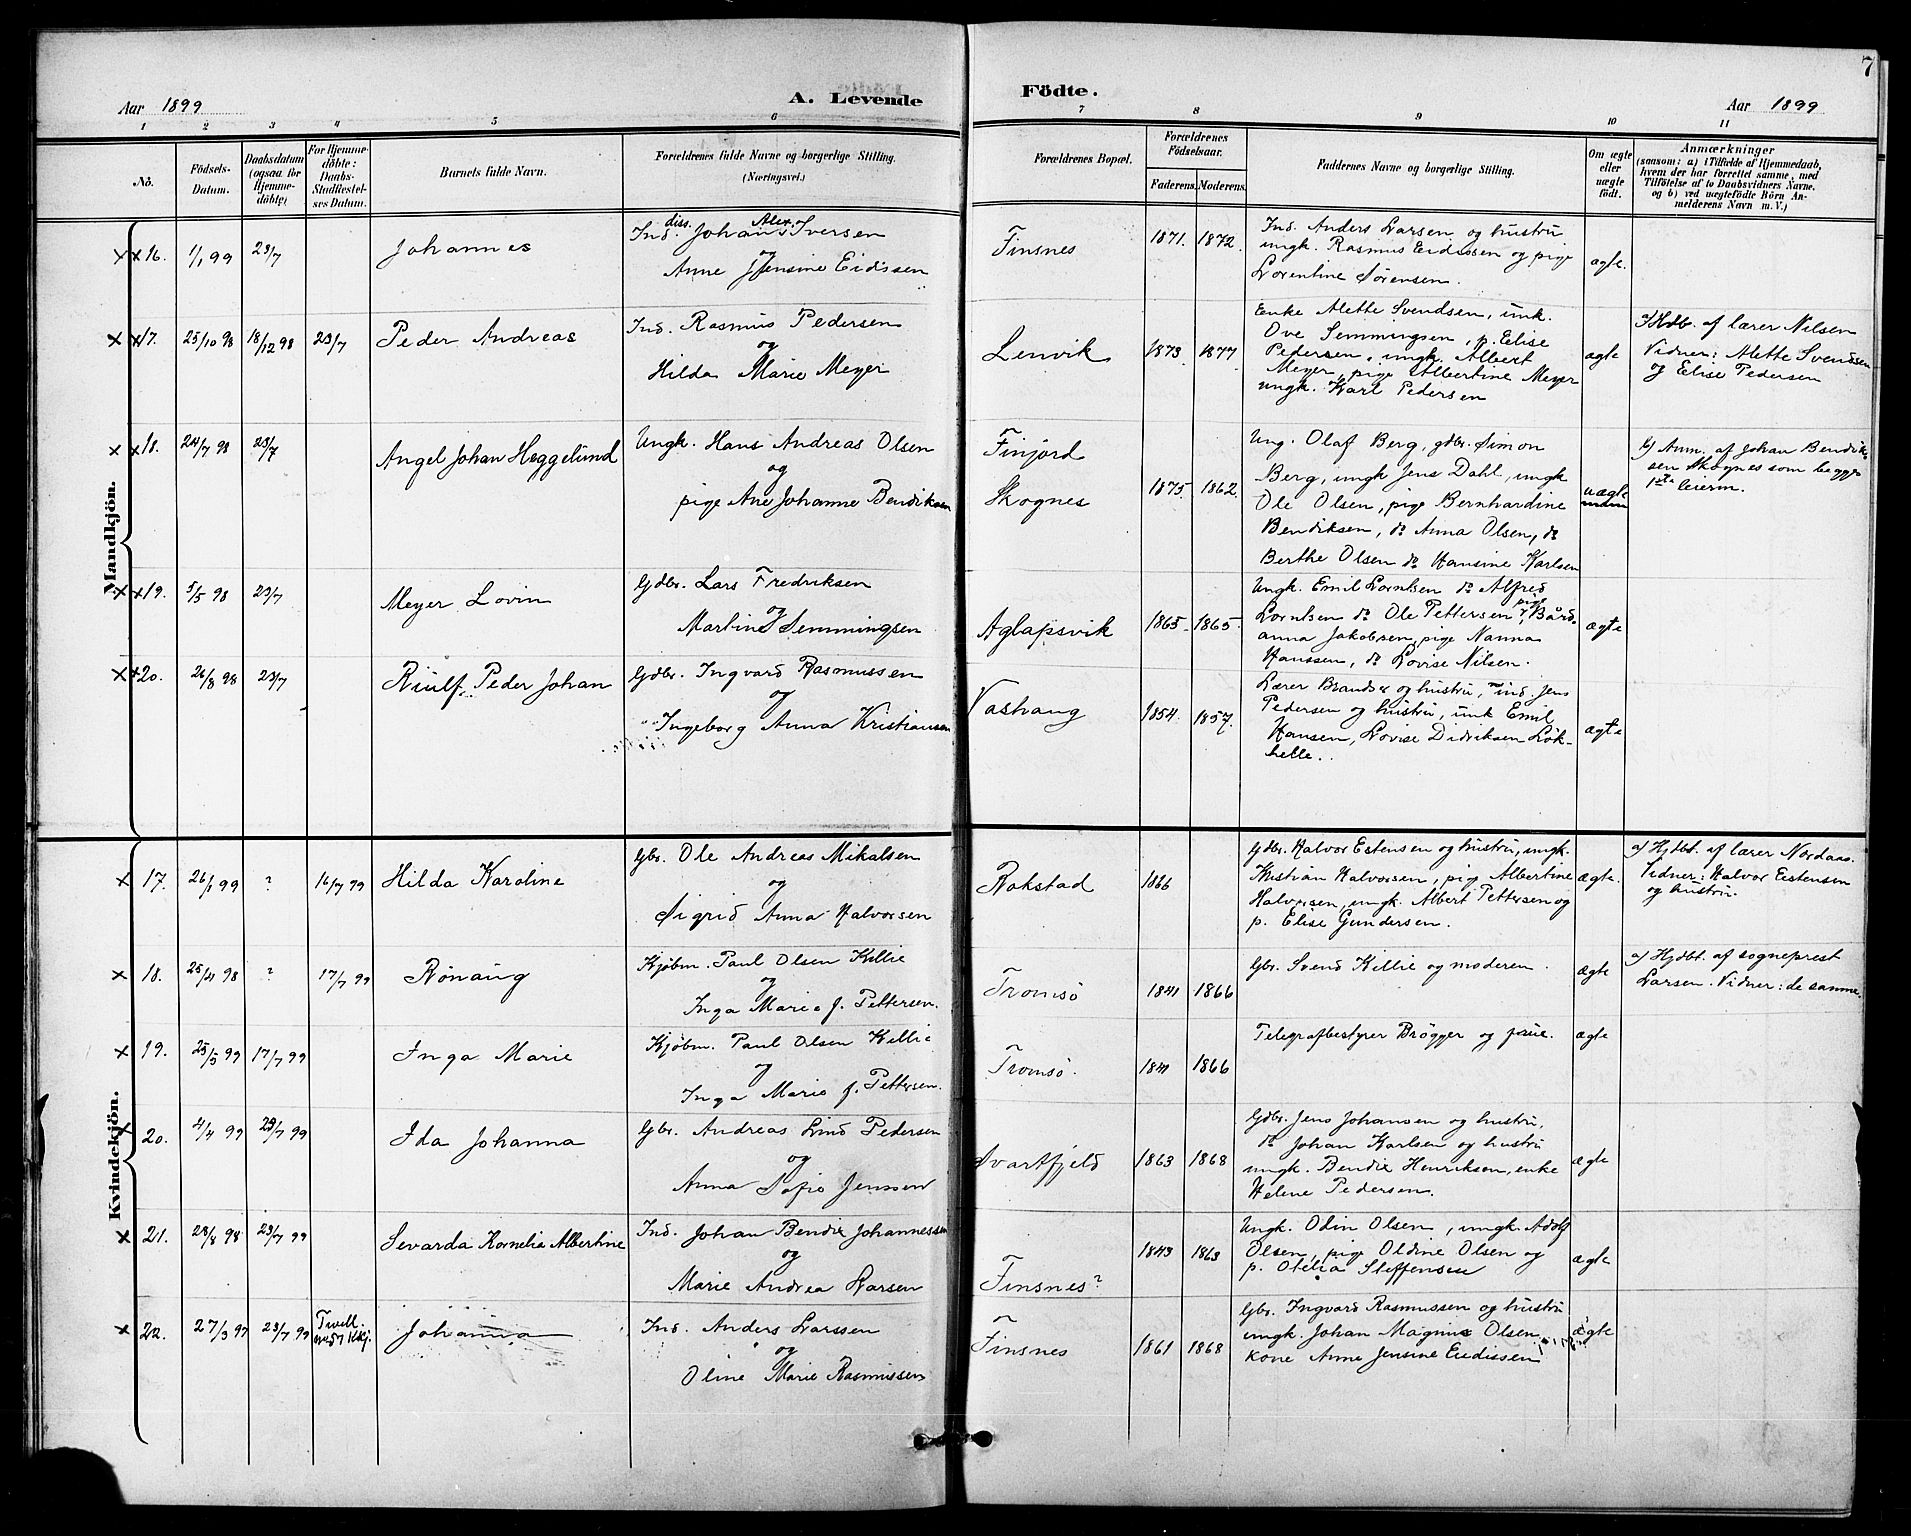 7
Aar 1899
A. Levende
Födte.
Aar 1899
1 2 3 4 5 6 7 8 9 10 11
No.
Födsels-
Datum.
Daabsdatum
(ogsaa for
Hjemme-
döbte)
For Hjemme-
döbte:
Daabs-
Stadfæstel-
ses Datum.
Barnets fulde Navn.
Forældrenes fulde Navne og borgerlige Stilling.
(Næringsvei.)
Forældrenes Bopæl.
Forældrenes
Födselsaar.
Faderens. Moderens.
Faddernes Navne og borgerlige Stilling.
Om ægte
eller
uægte
födt.
Anmærkninger
(saasom: a) i Tilfælde af Hjemmedaab,
hvem der har forrettet samme, med
Tilföielse af to Daabsvidners Navne,
og b) ved uægtefödte Börn An-
melderens Navn m. V.)
Mandkjön.
x x 16. 1/1 99 23/7 Johannes
Ind. diss. Johan Alex. Iversen
og
Anne Jensine Eidissen
Finsnes 1871. 1872.
Ind. Anders Larsen og hustru.
ungk. Rasmus Eidissen og pige
Lorentine Sörensen.
ægte.
x x 17. 25/10 98 18/12 98 23/7 Peder Andreas
Ind. Rasmus Pedersen
og
Hilda Marie Meyer
Lenvik 1873 1877
Enke Alette Svendsen, unk.
Ove Semmingsen, p. Elise
Pedersen, ungk. Albert
Meyer, pige Albertine Meyer
ungk. Karl Pedersen
ægte
a) Hdb. af lærer Nilsen
Vidner: Alette Svendsen
og Elise Pedersen
x x 18. 24/7 98 23/7 Angel Johan Heggelund
Ungk. Hans Andreas Olsen
og
pige Ane Johanne Bendiksen
Finjord
Skognes
1875. 1862.
Ung. Olaf Berg, gdbr. Simon
Berg, ungk Jens Dahl, ungk
Ole Olsen, pige Bernhardine
Bendiksen, do Anna Olsen, do
Berthe Olsen do Hansine Karlsen
uægte
b) Anm. af Johan Bendik-
sen Skognes som begges
1ste leierm.
x x 19. 5/5 98 23/7 Meyer Lovin
Gdbr. Lars Fredriksen
og
Martine Semmingsen
Aglapsvik 1865 1865.
Ungk. Emil Lorntsen do Alfred
Lorntsen do Ole Pettersen, pige Bård-
anna Jakobsen, pige Nanna
Hanssen, do Lovise Nilsen.
ægte
x x 20. 26/8 98 23/7 Riulf Peder Johan
Gdbr. Ingvard Rasmussen
og
Ingeborg Anna Kristiansen
Vashaug 1854. 1857.
Lærer Brandser og hustru, ind. Jens
Pedersen og hustru, unk Emil
Hansen, Lovise Didriksen Lök-
helle.
ægte
Kvindekjön.
x 17. 26/1 99 ? 16/7 99 Hilda Karoline
Gbr. Ole Andreas Mikalsen
og
Sigrid Anna Halvorsen
Rokstad 1866
Gdbr. Halvor Estensen og hustru, ungk.
Kristian Halvorsen, pige Albertine
Halvorsen, ungk. Albert Pettersen og
p. Elise Gundersen.
ægte.
a) Hjdbt. af lærer Nordaas.
Vidner: Halvor Eistensen
og hustru.
x 18. 25/4 98 ? 17/7 99 Rönaug
Kjöbm. Paul Olsen Killie
og
Inga Marie f. Pettersen.
Tromsö 1841 1866
Gbr. Svend Killie og moderen.
ægte
a) Hjdbt. af sogneprest
Larsen. Vidner: de samme.
x 19. 25/5 99 17/7 99 Inga Marie
Kjöbm. Paul Olsen Killie
og
Inga Marie f. Pettersen.
Tromsö. 1841 1866
Telegrafbestyrer Brögger og frue.
ægte
x 20. 4/4 99 23/7 99 Ida Johanna
Gbr. Andreas Lind Pedersen
og
Anna Sofie Jensen
Svartfjeld 1863 1868
Gdbr. Jens Johansen og hustru,
do Johan Karlsen og hustru
ungk. Bendix Henriksen, enke
Helene Pedersen.
ægte
x 21. 28/8 98 23/7 99 Sevarda Kornelie Albertine
Ind. Johan Bendix Johannessen
og
Marie Andrea Larsen
Finsnes? 1843 1863
Ungk. Odin Olsen, ungk. Adolf
Olsen, pige Oldine Olsen og
p. Otelia Steffensen
ægte
x 22. 27/3 97 23/7 99 Tvill. Johanna
Ind. Anders Larssen
og
Oline Marie Rasmussen
Finsnes 1861 1868
Gbr. Ingvard Rasmussen og hustru
ungk. Johan Magnus Olsen
kone Anne Jensine Eidissen
ægte